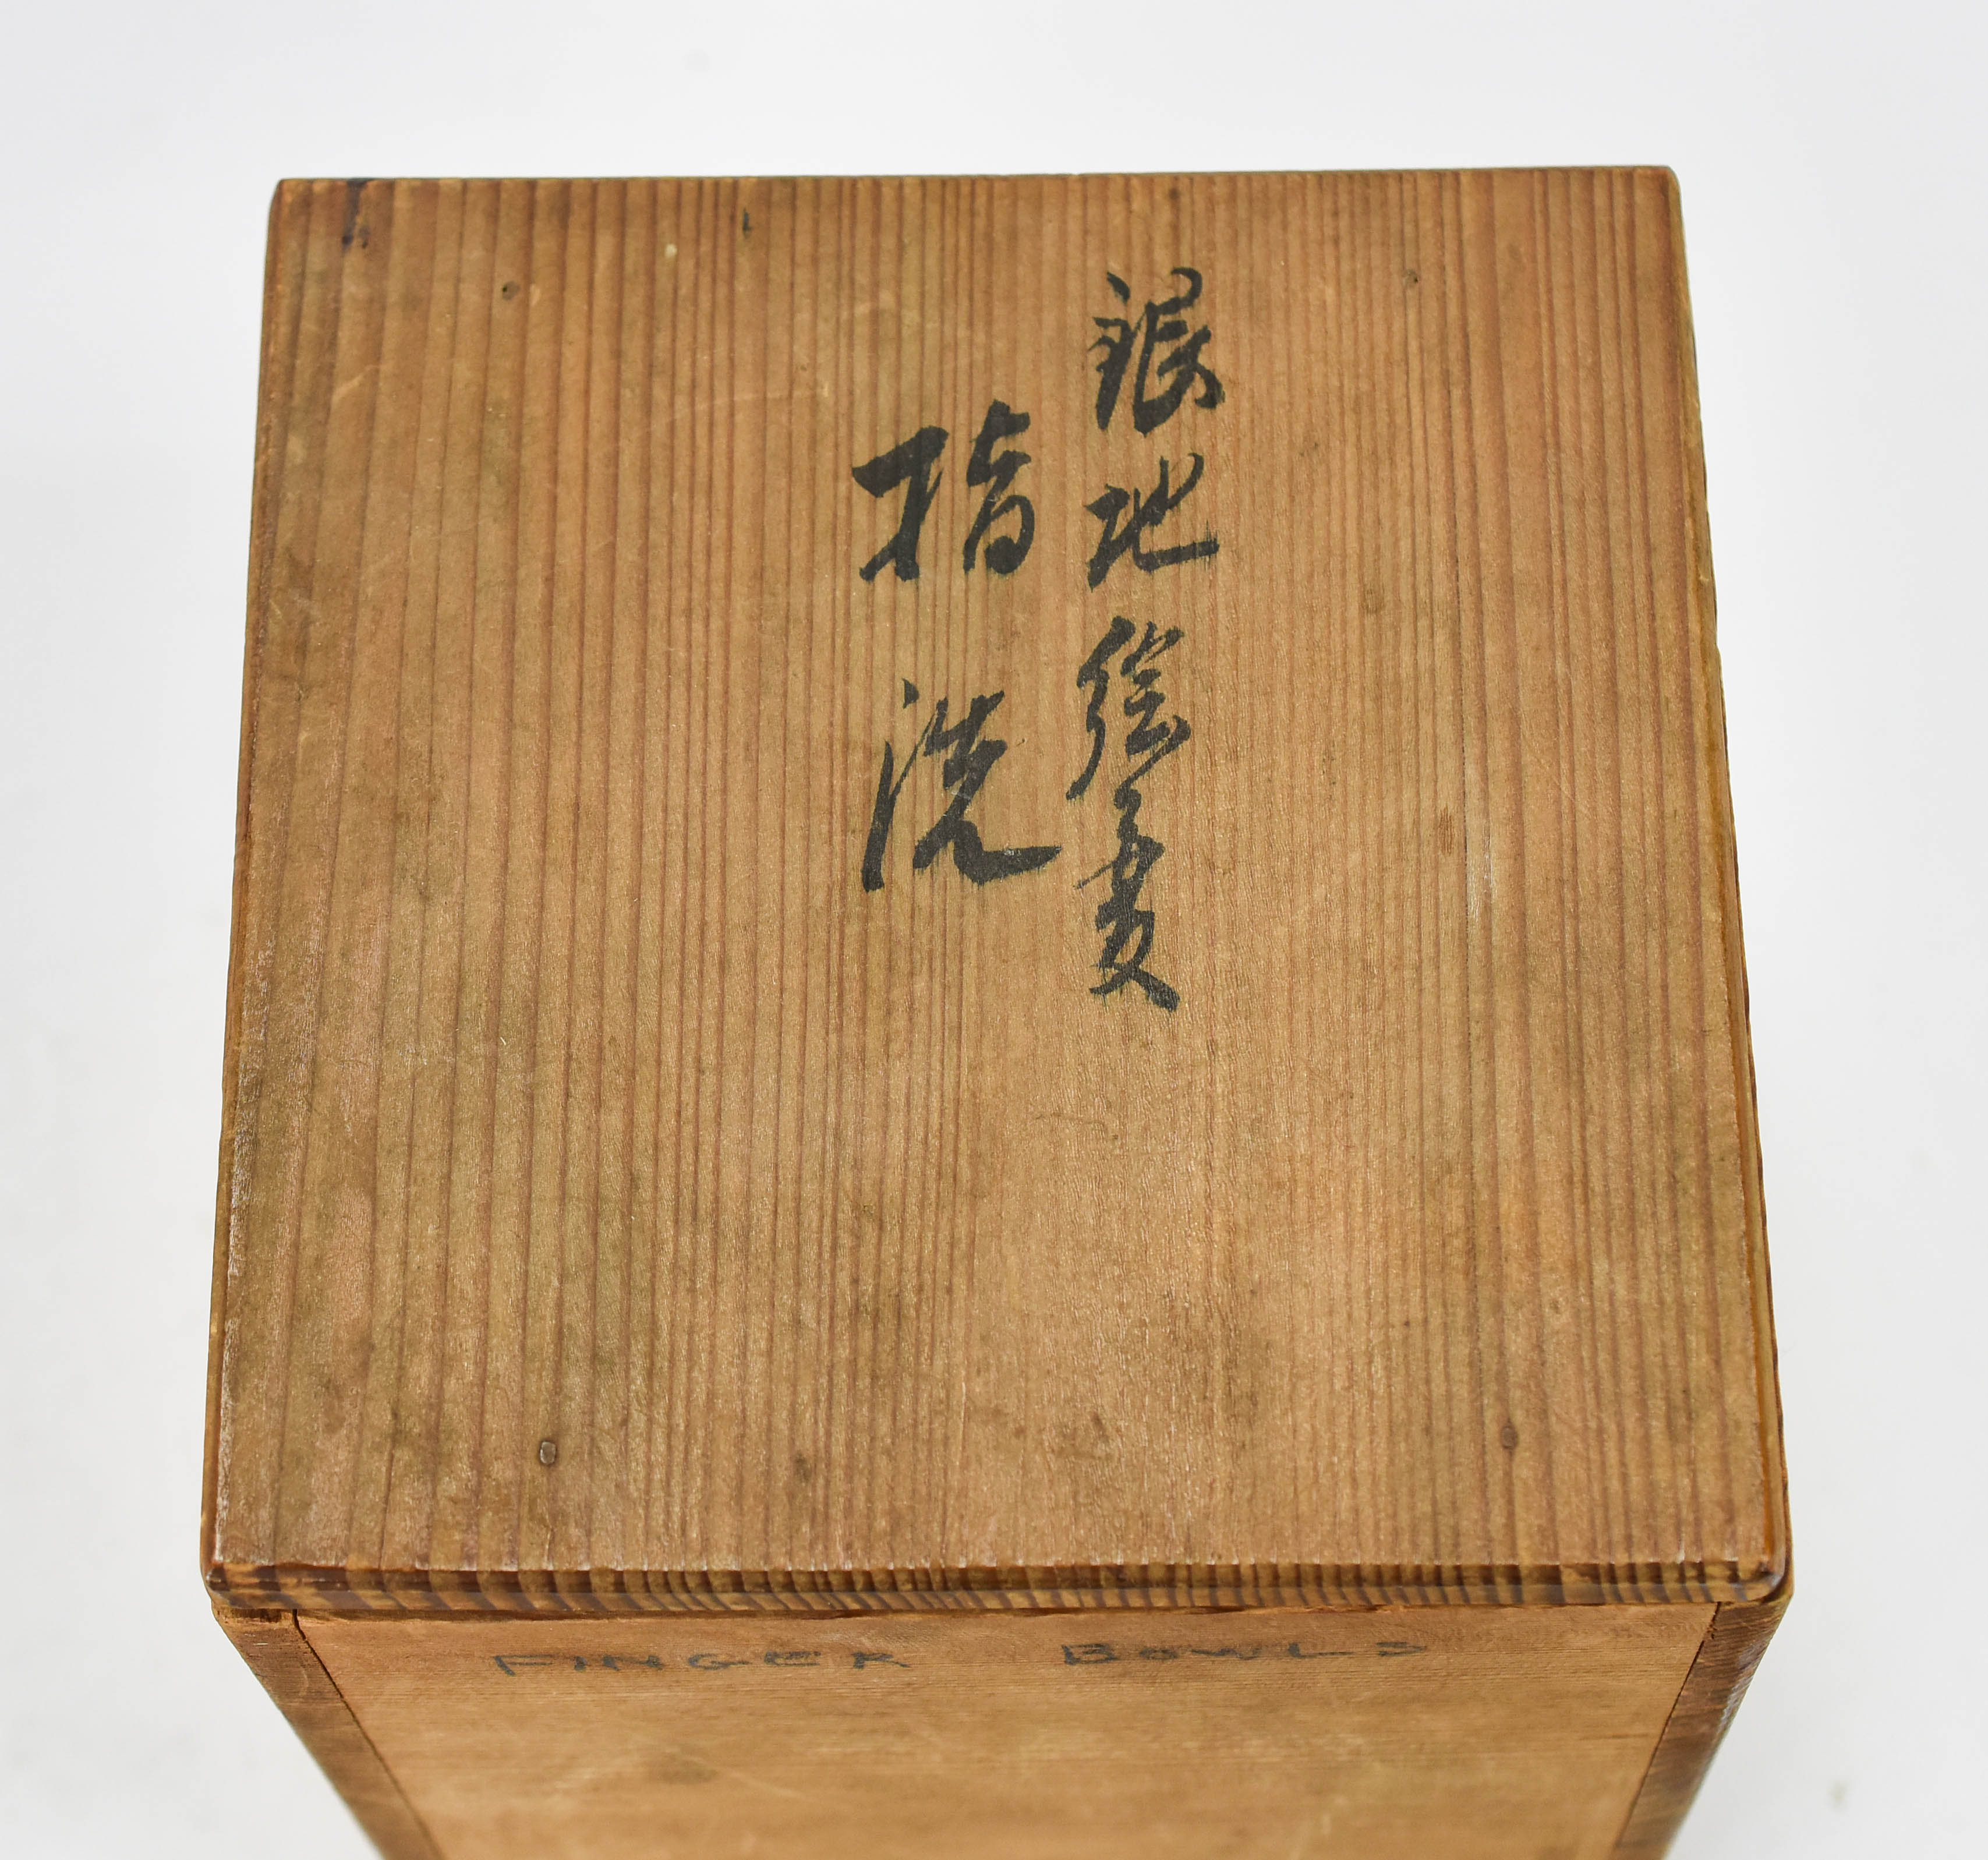 銀地絵変
指洗
FINGER BOWLS